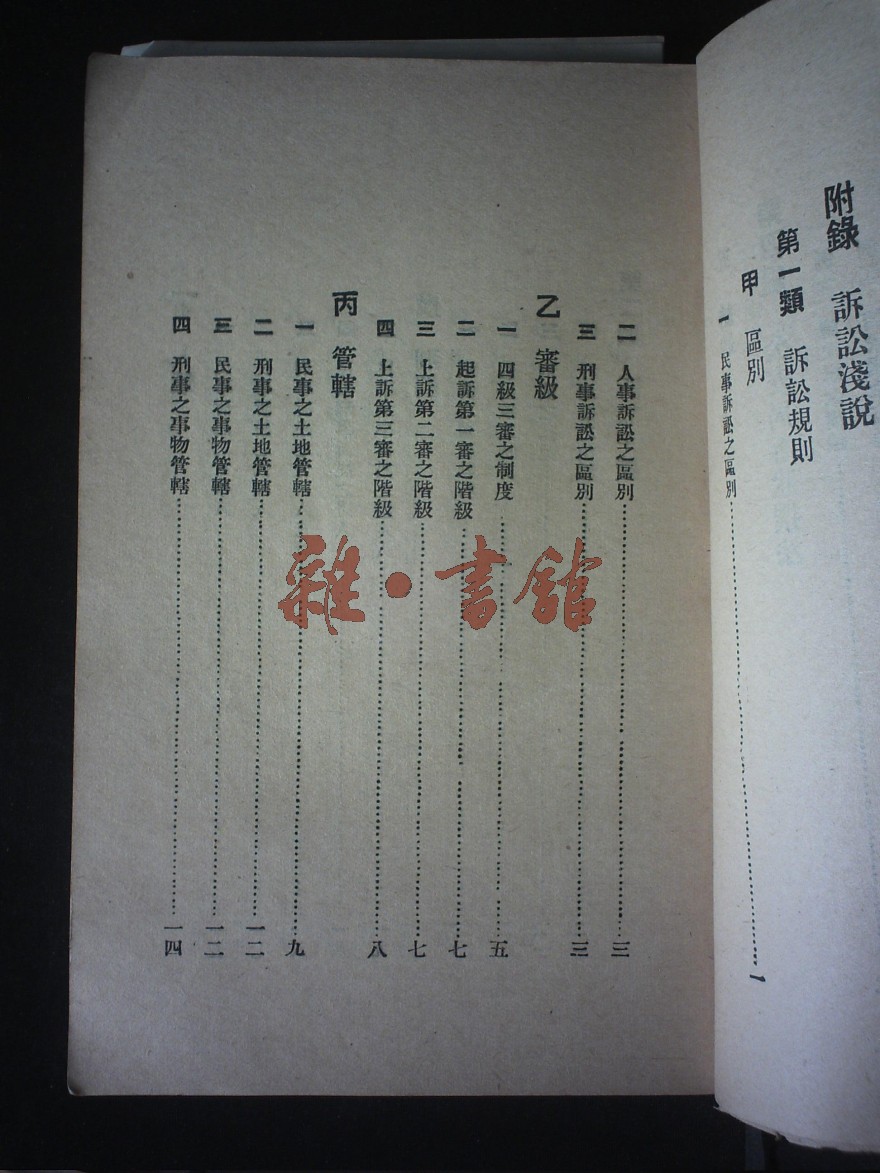 附錄　訴訟淺說
第一類　訴訟規則
甲　區別
一　民事訴訟之區別……一
二　人事訴訟之區別……三
三　刑事訴訟之區別……三
乙　審級
一　四級三審之制度……五
二　起訴第一審之階級……七
三　上訴第二審之階級……七
四　上訴第三審之階級……八
丙　管轄
一　民事之土地管轄……九
二　刑事之土地管轄……一二
三　民事之事物管轄……一二
四　刑事之事物管轄……一四
雜·書館